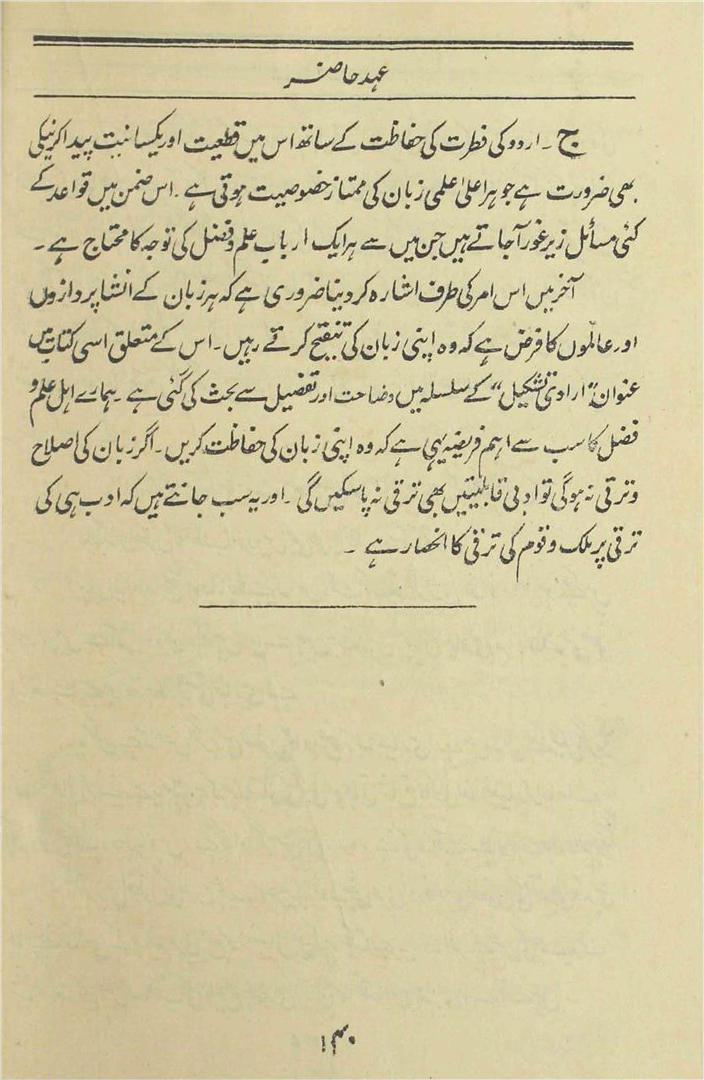 عہد حاضر
ج ۔ اردو کی فطرت کی حفاظت کے ساتھ اس میں قطعیت اور یکسانیت پیدا کرنیکی
بھی ضرورت ہے جو ہر اعلیٰ علمی زبان کی ممتاز خصوصیت ہوتی ہے ۔ اس ضمن میں قواعد کے
کئی مسائل زیر غور آجاتے ہیں جن میں سے ہر ایک ارباب علم و فضل کی توجہ کا محتاج ہے ۔
آخر میں اس امر کی طرف اشارہ کر دینا ضروری ہے کہ ہر زبان کے انشا پردازوں
اور عالموں کا فرض ہے کہ وہ اپنی زبان کی تنقیح کرتے رہیں ۔ اس کے متعلق اسی کتاب میں
عنوان "ارادی تشکیل" کے سلسلہ میں وضاحت اور تفصیل سے بحث کی گئی ہے ۔ ہمارے اہل علم و
فضل کا سب سے اہم فریضہ یہی ہے کہ وہ اپنی زبان کی حفاظت کریں ۔ اگر زبان کی اصلاح
و ترقی نہ ہوگی تو ادبی قابلیتیں بھی ترقی نہ پاسکیں گی ۔ اور یہ سب جانتے ہیں کہ ادب ہی کی
ترقی پر ملک و قوم کی ترقی کا انحصار ہے ۔
۱۴۰